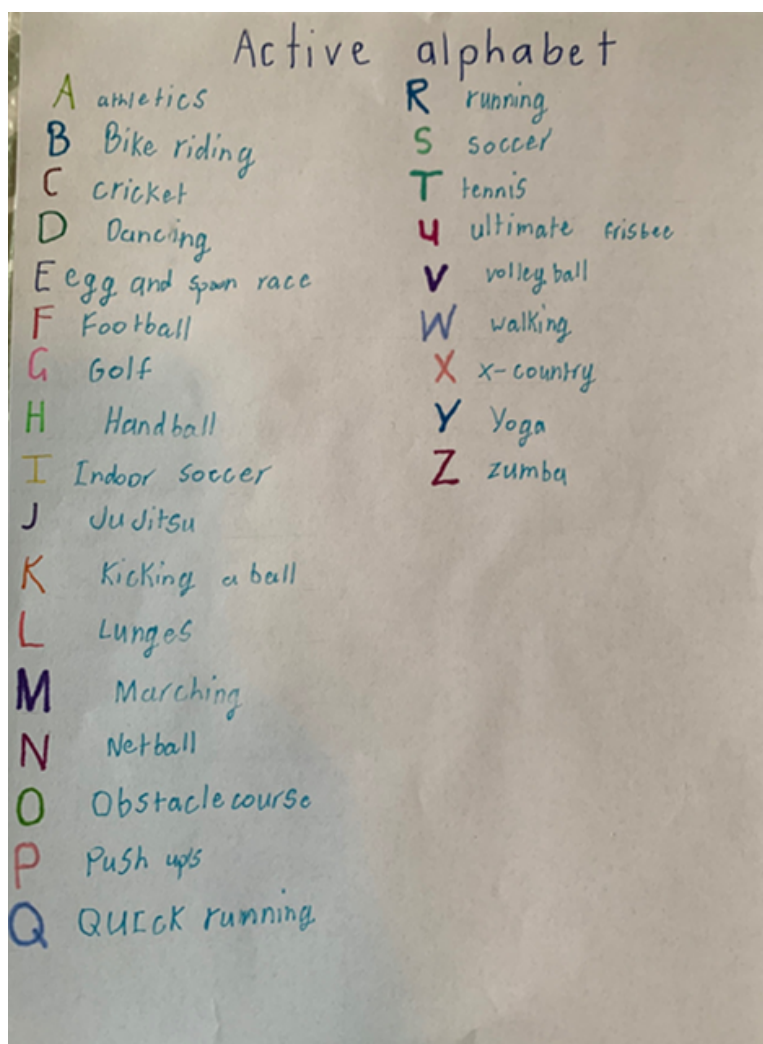 Active alphabet
A athletics
B Bike riding
C cricket
D Dancing
E egg and spoon race
F Football
G Golf
H Handball
I Indoor soccer
J Ju Jitsu
K Kicking a ball
L Lunges
M Marching
N Netball
O Obstacle course
P Push ups
Q QUIcK running
R running
S soccer
T tennis
U ultimate frisbee
V volley ball
W walking
X x-country
Y Yoga
Z zumba